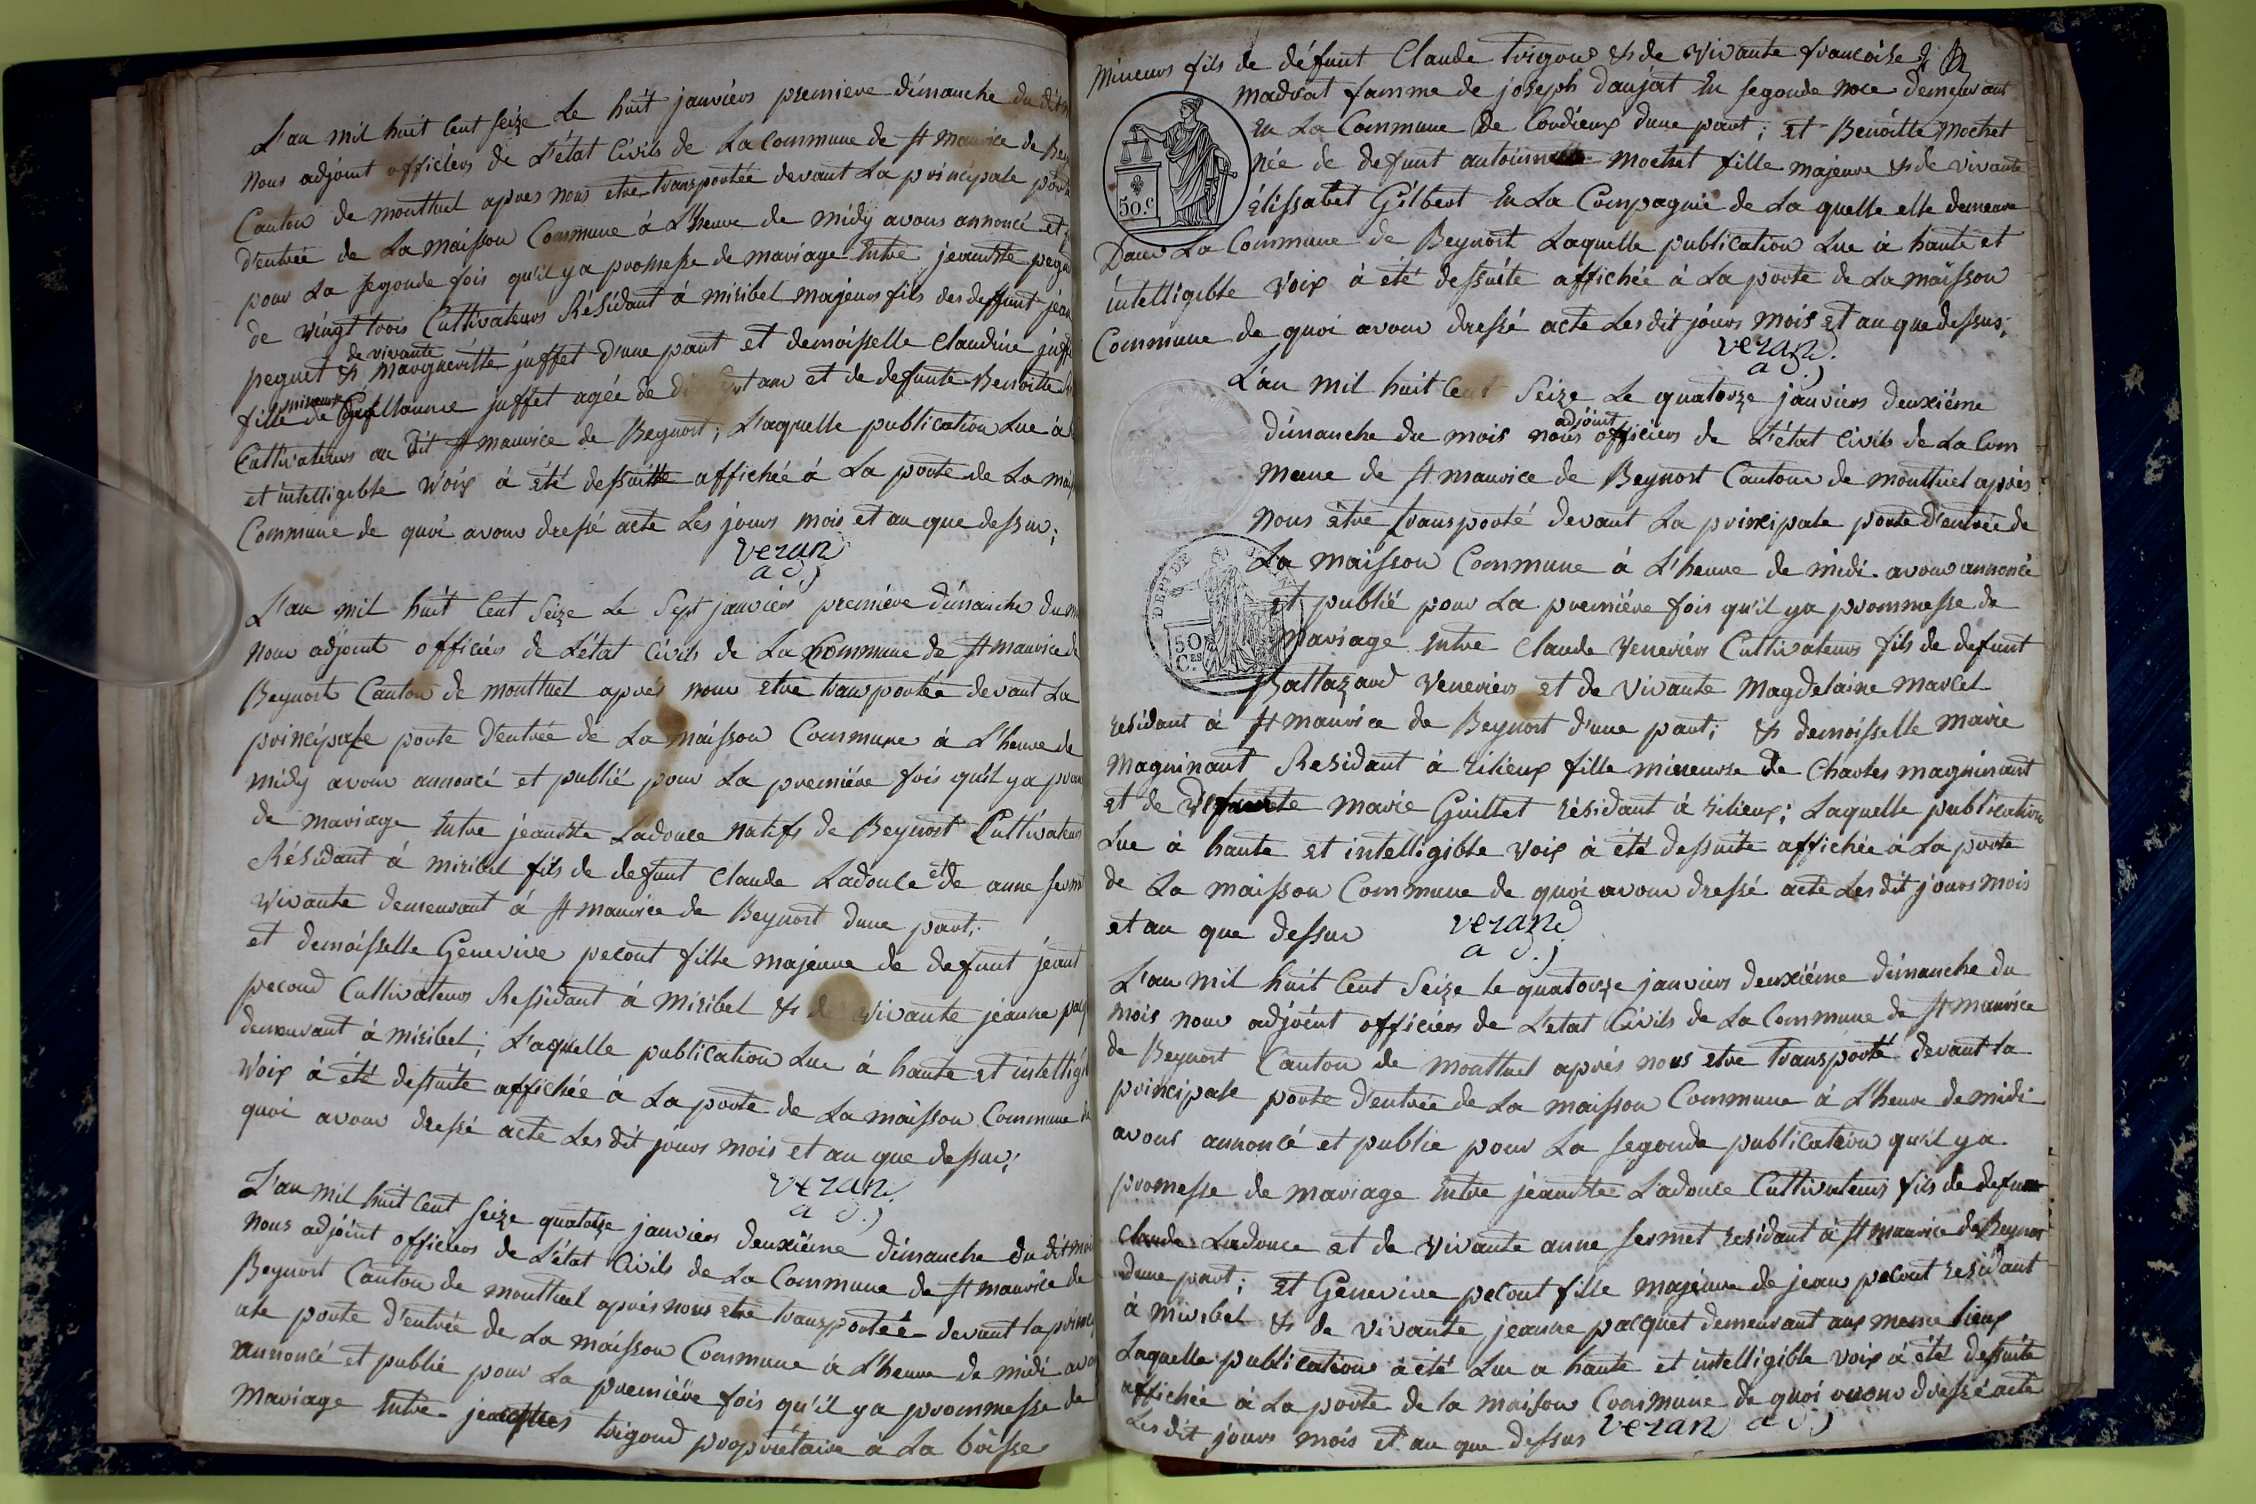 L'an mil huit cent seize Le huit janviers premiere dimanche du dit
Nous adjoint officiers de L'état Civils de La Commune de St maurice de
Canton de montluel apres nous etre transportée devant La principale porte
d'entrée de La maisson Commune à L'heure de midy avons annoncé et
pour La segonde fois qu'il ya promesse de mariage Entre jeanbte
de vingt trois Cultivateurs Résidant à miribel majeurs fils des deffunt jean
de vivante
peguet & Margueritte juffet d'une part et demoisselle Claudine
mineure
fille de Guillaume juffet agée de et de defunte Benoitte
Cultivateurs au dit St maurice de Beynost; L'aquelle publication Lue à
et intelligible voix à été dessuitte affichée à La porte de La
Commune de quoi avons dressé acte Les jours mois et an que dessus;
veran
adj
L'an mil huit Cent Seize Le Sept janviers premiere dimanche du
Nous adjoint officiers de L'état Civils de La Commune de St maurice de
Beynost Canton de montluel aprés nous Etre transportée devant La
principale porte d'entrée de La maisson Commune à L'heure de
midy avons annoncé et publié pour La premiére fois qu'il ya
de mariage Entre jeanbte Ladouce natifs de Beynost Cultivateurs
Résidant à miribel fils de defunt Claude Ladouce et de anne
vivante demeurant à St maurice de Beynost dune part;
et demoisselle Genevive pecout fille majeure de defunt
pecoud Cultivateurs Ressidant à Miribel & de vivante jeanne
demeurant à miribel; L'aquelle publication Lue à haute et
voix à été dessuite affichée à La porte de La maisson Commune de
quoi avons dressé acte Les dit jours mois et an que dessus;
veran
adj
L'an mil huit Cent seize quatorze janviers deuxiéme dimanche du dit mois
Nous adjoint officiers de L'état Civils de La Commune de St maurice de
Beynost Canton de montluel aprés nous etre transportée devant la
ale porte d'entrée de La maisson Commune à L'heure de midi
annoncé et publié pour La premiére fois qu'il ya prommesse de
Mariage Entre trigoud propriétaire à La boisse
Mineurs fils de défunt Claude trigoud & de vivante francoise
madrat famme de joseph daujat En segonde noce demeurant
En La Commune de Cordieux dune part; Et Benoitte mochet
née de defunt mochet fille majeure & de vivante
Elissabet Gilbert En La Compagnie de La quelle elle demeure
50.c
Dans La Commune de Beynost Laquelle publication Lue à haute et
intelligible voix à été dessuite affichée à La porte de La maisson
Commune de quoi avons dressé acte Les dit jours mois Et an que dessus;
veran
adj
L'an mil huit Cent Seize Le quatorze janviers deuxiéme
adjoint
dimanche du mois nous officiers de L'état Civils de La Com
mune de St maurice de Beynost Cantoue de montluel aprés
nous être transporté devant La principale porte d'entrée de
La maisson Commune à L'heure de midi avons annoncé
et publié pour La premiére fois qu'il ya prommesse de
mariage Entre Claude Veneriérs Cultivateurs fils de defunt
50 Ces
Baltazard Veneriers et de vivante Magdelaine Marcel
residant à St maurice de Beynost d'une part; & demoisselle marie
Magninant Residant à rilieux fille mineure de Charles magninant
et de defunte marie Guillet résidant à rilieux; Laquelle publication
Lue à haute et intelligible voix à été dessuite affichée à La porte
de La maisson Commune de quoi avons dressé acte Les dit jours mois
et an que dessus
veran
adj
L'an mil huit Cent Seize le quatorze janviers deuxiéme dimanche du
mois nous adjoint officiers de L'etat Civils de La Commune de St maurice
de Beynost Canton de montluel aprés nous etre transporté devant la
principale porte d'entrée de La maisson Commune à L'heure de midi
avons annoncé et publie pour La segonde publication qu'il ya
promesse de mariage Entre jeanbte L'adouce Cultivateurs fils de defunt
Claude Ladouce et de vivante anne fermet residant à St maurice de Beynost
dune part; Et Genevive pecout fille majeure de jean pecout residant
à miribel & de vivante jeanne pacquet demeurant aux meme lieux
Laquelle publication à été Lue a haute et intelligible voix à été dessuite
affichée à La porte de la maisson Commune de quoi avons dressé acte
Les dit jours mois et an que dessus veran adj